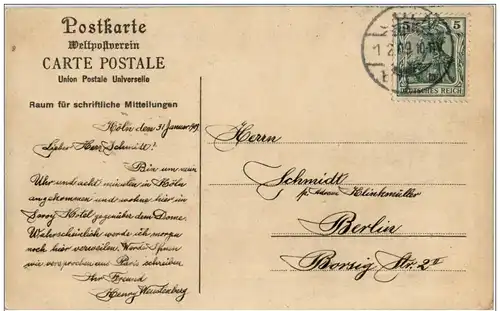 Postkarte
Weltpostverein
CARTE POSTALE
Union Postale Universelle
Raum für schriftliche Mitteilungen
Köln den 31 Januar 09
Lieber Herr Schmidt!
Bin um neun
Uhr und acht minuten in Köln
angekommen und wohne hier im
Savoy Hotel gegenüber dem Dome.
Wahrscheinlich werde ich morgen
noch hier verweilen. Werde Ihnen
wie versprochen aus Paris schreiben
Ihr Freund
Henry
5
1 2 09 10
DEUTSCHES REICH
Herrn
Schmidt
Klinkmüller
Berlin
Borsig Str. 2